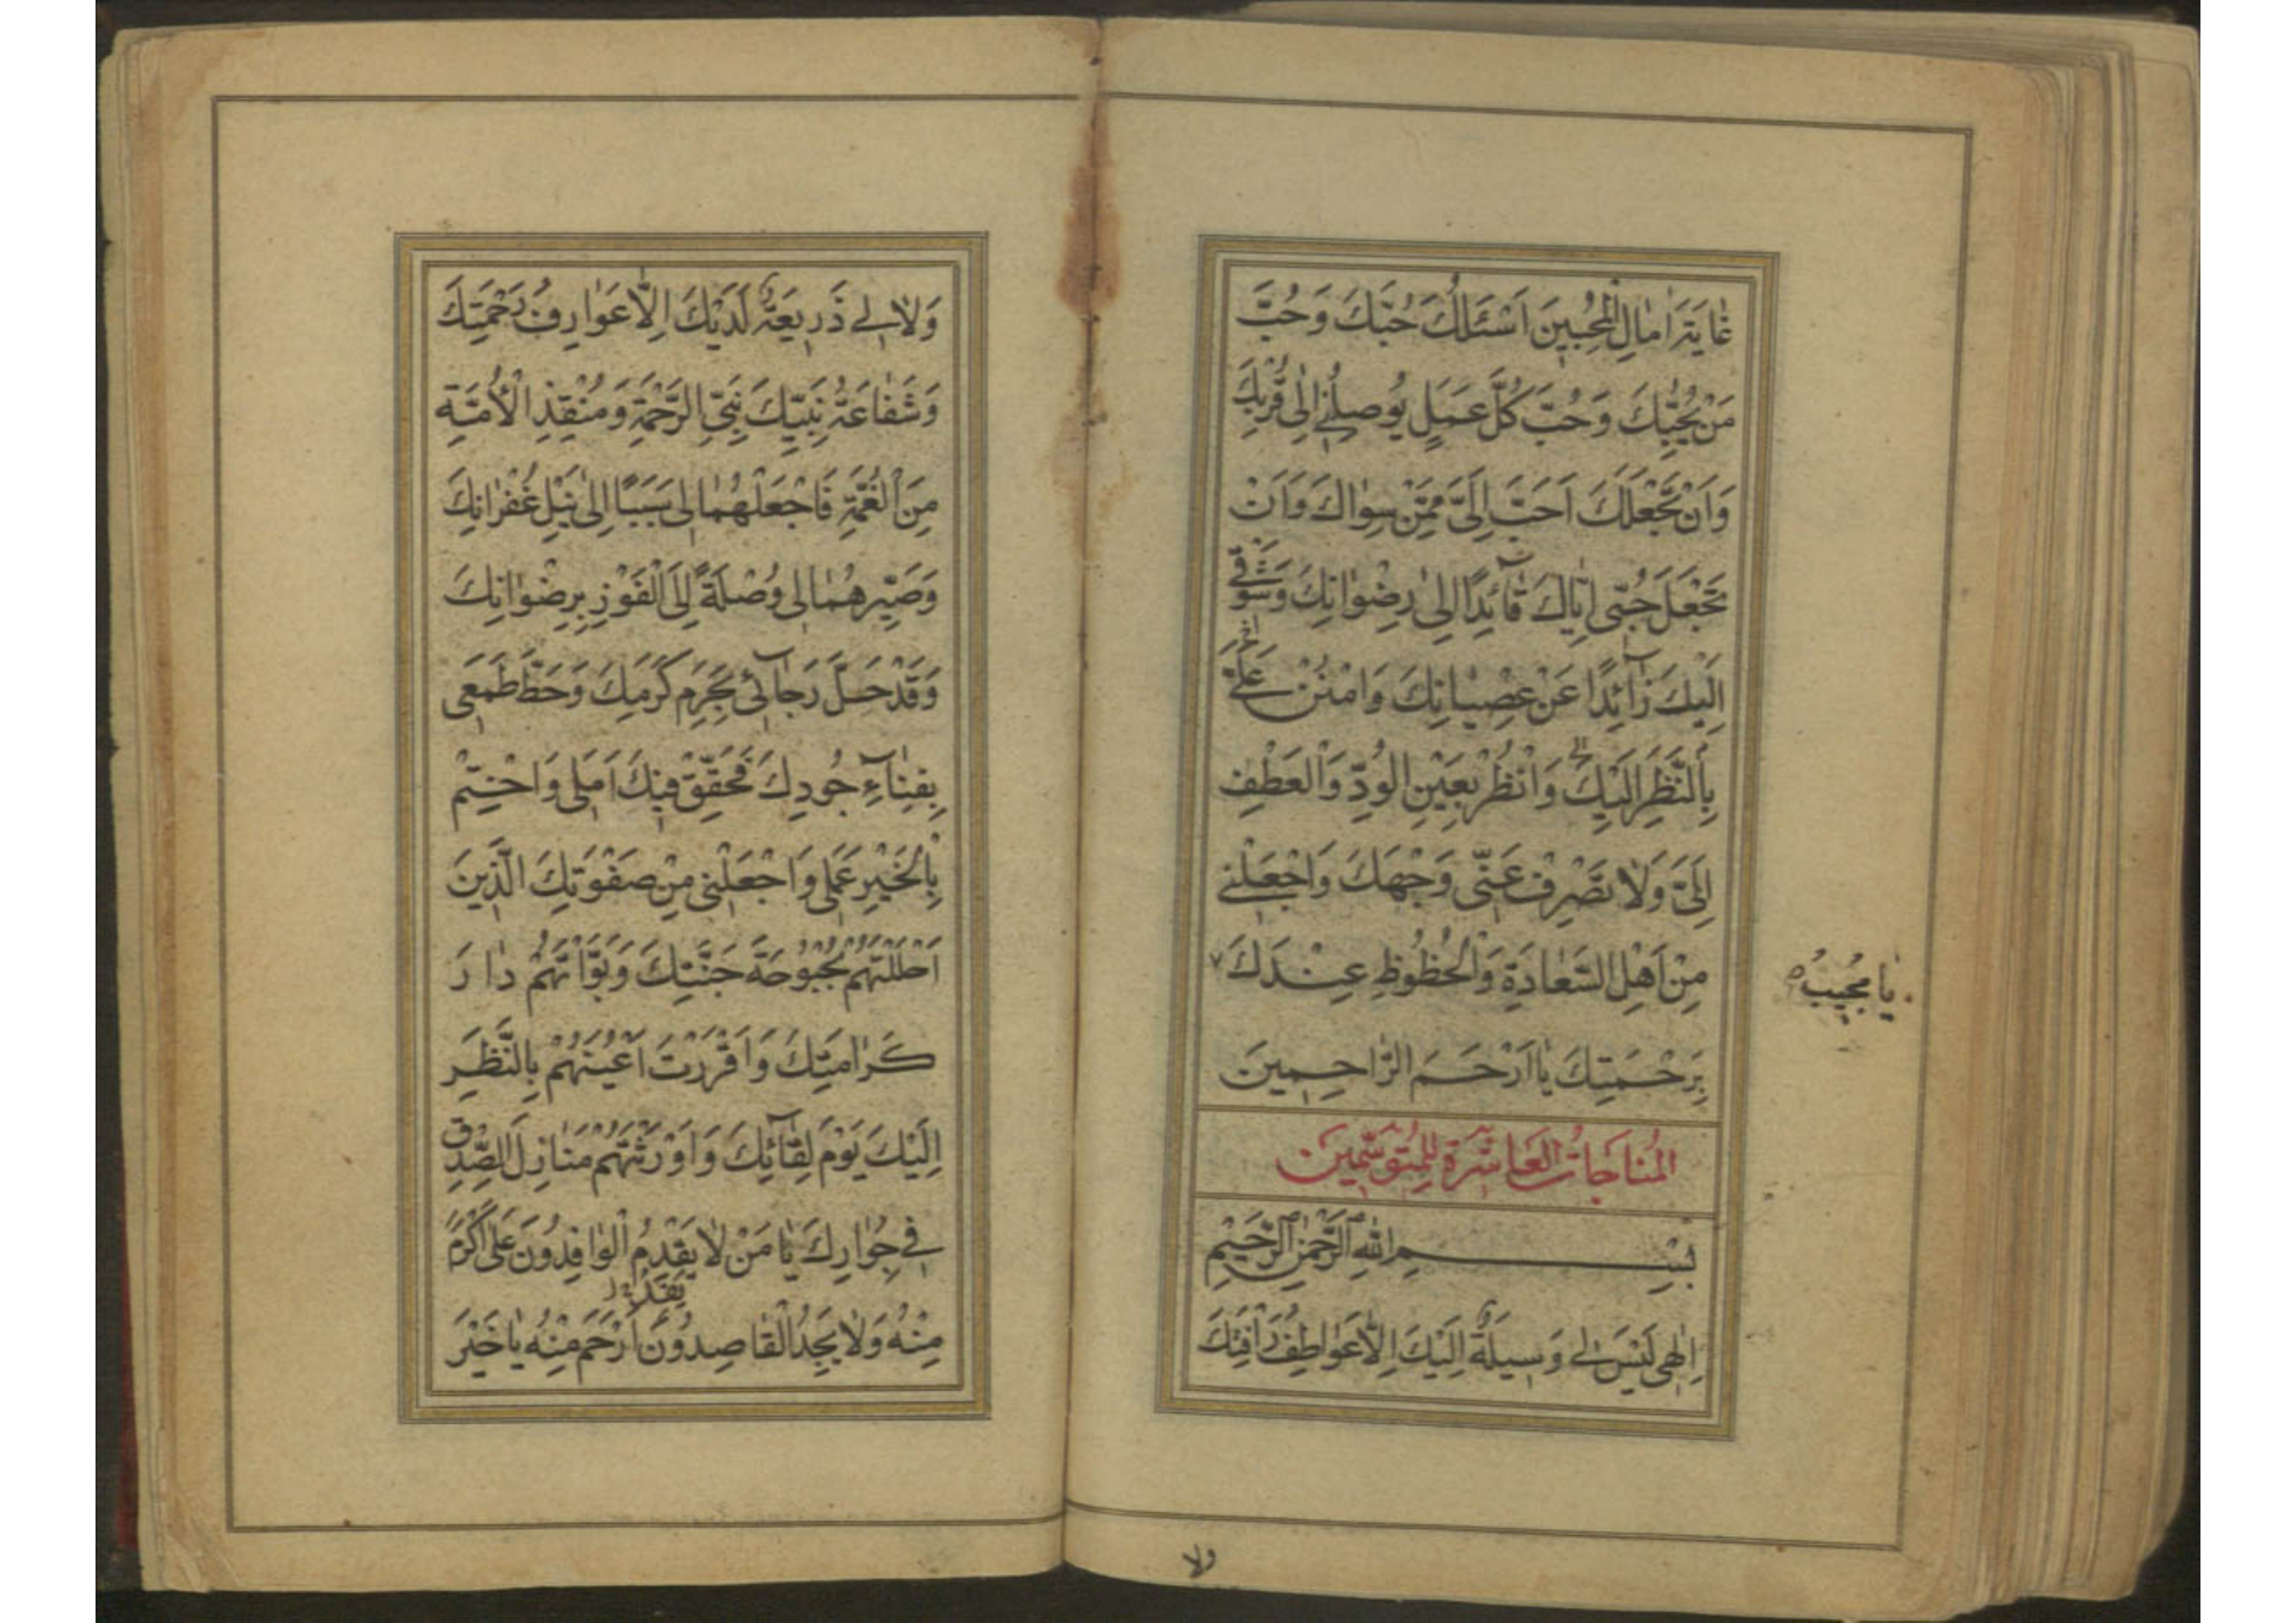 غٰايَةَ اٰمٰالِ الْمُحِبّينَ اَسْئَلُكَ حُبَّكَ وَحُبَّ
مَنْ يُحِبُّكَ وَحُبَّ كُلِّ عَمَلٍ يُوصِلُنى اِلٰى قُرْبِكَ
وَاَنْ تَجْعَلَكَ اَحَبَّ اِلَىَّ مِمَّنْ سِوٰاكَ وَاَنْ
تَجْعَلَ حُبّى اِيّٰاكَ قٰآئِدًا اِلىٰ رِضْوٰانِكَ وَشَوْقى
اِلَيْكَ زٰآئِدًا عَنْ عِصْيٰانِكَ وَامْنُنْ عَلَىَّ
بِالنَّظَرِ اِلَيْكَ وَانْظُرْ بِعَيْنِ الْوُدِّ وَالْعَطْفِ
اِلَىَّ وَلٰا تَصْرِفْ عَنّى وَجْهَكَ وَاجْعَلْنى
مِنْ اَهْلِ السَّعٰادَةِ وَالْحُظْوُظِ عِنْدَكَ
يٰا مُجيبُ
بِرَحْمَتِكَ يٰا اَرْحَمَ الرّٰاحِمِينَ
الْمُنٰاجٰاتُ الْعٰاشِرَةُ لِلْمُتَوَسِّمينَ
بِسْمِ اللهِ الرَّحْمٰنِ الرَّحيْمِ
اِلٰهى لَيْسَ لى وَسيلَةٌ اِلَيْكَ اِلّٰا عَوٰاطِفُ رَاْفَتِكَ
ولا
وَلٰا لى ذَريعَةٌ لَدَيْكَ اِلّٰا عَوٰارِفُ رَحْمَتِكَ
وَشَفٰاعَةُ نَبِيِّكَ نَبِىِّ الرَّحْمَةِ وَمُنْقِذِ الْاُمَّةِ
مِنَ الْغُمَّةِ فَاجْعَلْهُمٰا لى سَبَبًا اِلىٰ نَيْلِ غُفْرٰانِكَ
وَصَيِّرْهُمٰا لى وُصْلَةً اِلَى الْفَوْزِ بِرِضْوٰانِكَ
وَقَدْ حَلَّ رَجٰآئى بِحَرَمِ كَرَمِكَ وَحَطَّ طَمَعى
بِفِنٰآءِ جُودِكَ فَحَقِّقْ فيكَ اَمَلى وَاخْتِمْ
بِالْخَيْرِ عَمَلى وَاجْعَلْنى مِنْ صَفْوَتِكَ الَّذينَ
اَحْلَلْتَهُمْ بُحْبُوحَةَ جَنَّتِكَ وَبَوَّاْتَهُمْ دٰارَ
كَرٰامَتِكَ وَاَقْرَرْتَ اَعْيُنَهُمْ بِالنَّظَرِ
اِلَيْكَ يَوْمَ لِقٰآئِكَ وَاَوْرَثْتَهُمْ مَنٰازِلَ الصِّدْقِ
فى جِوٰارِكَ يٰا مَنْ لٰا يَقْدِمُ الْوٰافِدُونَ عَلىٰ اَكْرَمَ
مِنْهُ وَلٰا يَجِدُ الْقٰاصِدُونَ اَرْحَمَ مِنْهُ يٰا خَيْرَ